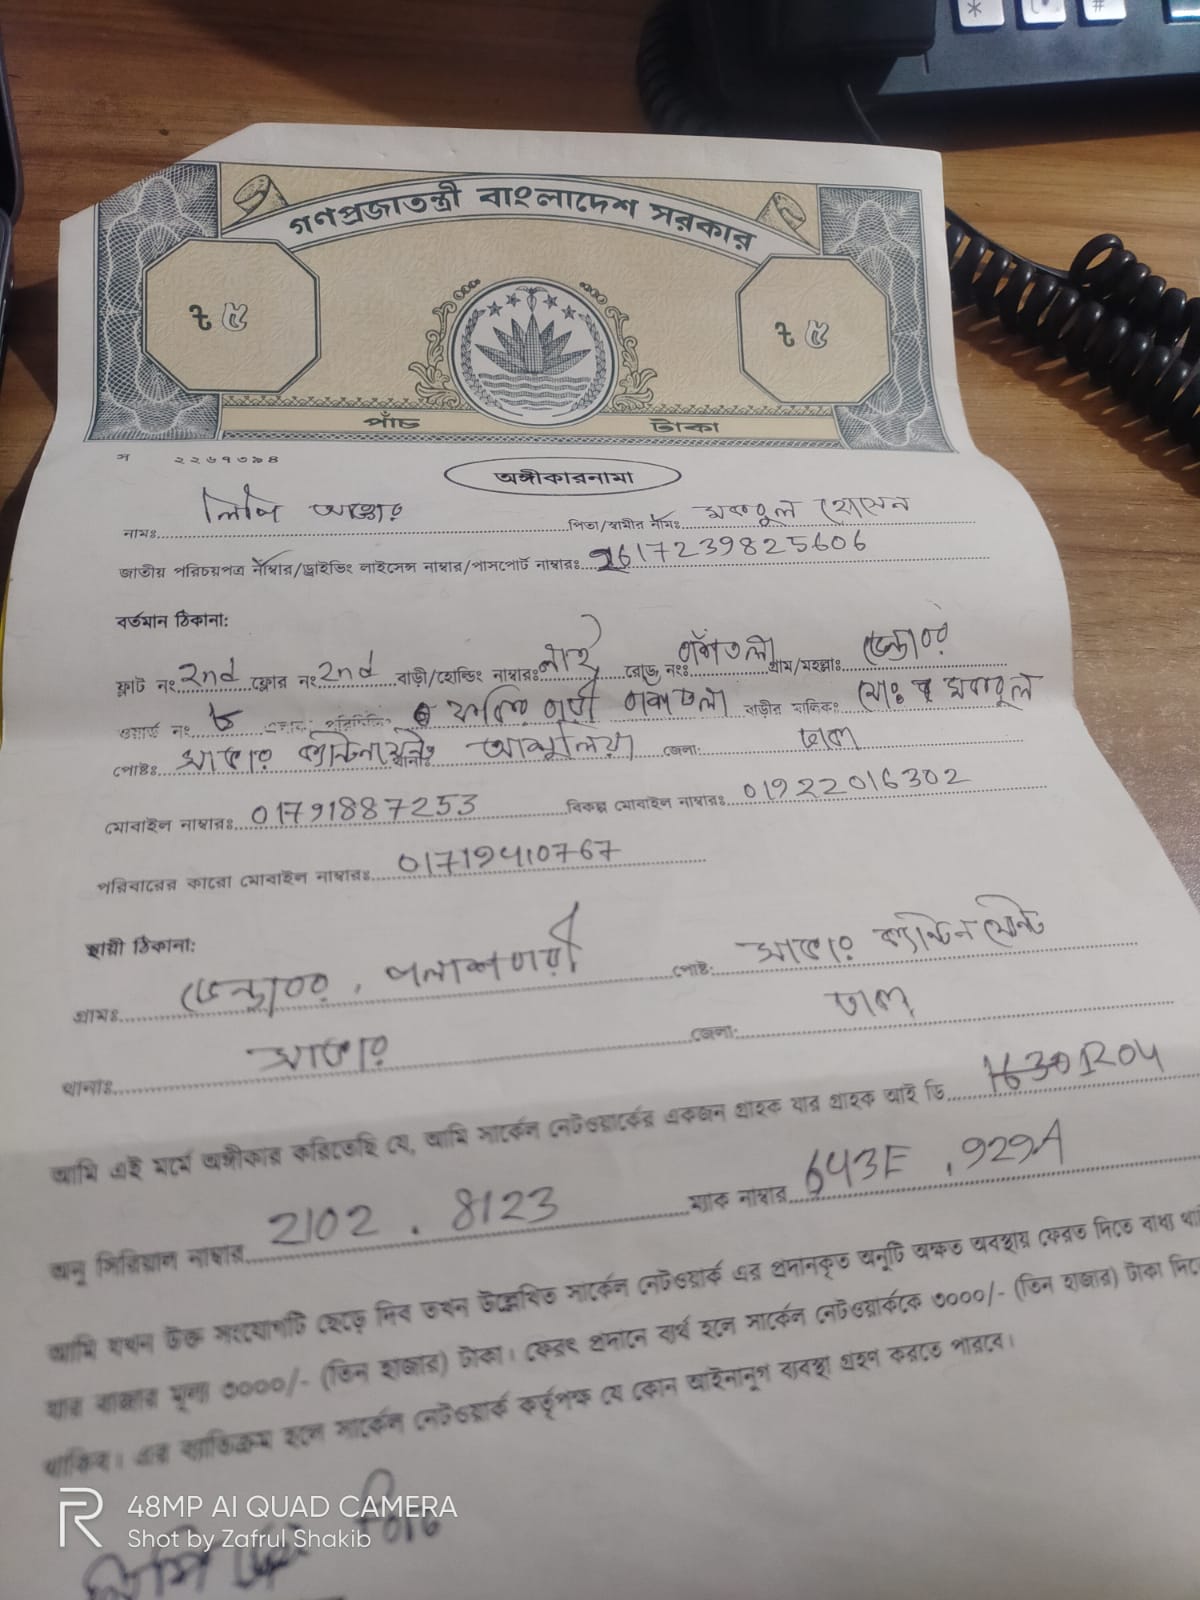 গণপ্রজাতন্ত্রী বাংলাদেশ সরকার
৳ ৫ ৳ ৫
পাঁচ টাকা
অঙ্গীকারনামা
নামঃ লিপি আক্তার পিতা/স্বামীর নামঃ মকবুল হোসেন
জাতীয় পরিচয়পত্র নাম্বার/ড্রাইভিং লাইসেন্স নাম্বার/পাসপোর্ট নাম্বারঃ 2617239825606
বর্তমান ঠিকানা:
ফ্লাট নং 2nd ফ্লোর নং 2nd বাড়ী/হোল্ডিং নাম্বারঃ নাই রোড নংঃ গ্রাম/মহল্লাঃ ডেন্ডাবর
ওয়ার্ড নং ৮ বাড়ীর মালিকঃ মোঃ মকবুল
পোষ্টঃ সাভার ক্যান্টনমেন্ট থানাঃ আশুলিয়া জেলা: ঢাকা
মোবাইল নাম্বারঃ 01791887253 বিকল্প মোবাইল নাম্বারঃ 01922016302
পরিবারের কারো মোবাইল নাম্বারঃ 01719410767
স্থায়ী ঠিকানা:
গ্রামঃ ডেন্ডাবর, পলাশবাড়ী পোষ্ট: সাভার ক্যান্টনমেন্ট
থানাঃ সাভার জেলা: ঢাকা
আমি এই মর্মে অঙ্গীকার করিতেছি যে, আমি সার্কেল নেটওয়ার্কের একজন গ্রাহক যার গ্রাহক আই ডি
অনু সিরিয়াল নাম্বার 2102 . 8123 ম্যাক নাম্বার 643E . 929A
আমি যখন উক্ত সংযোগটি ছেড়ে দিব তখন উল্লেখিত সার্কেল নেটওয়ার্ক এর প্রদানকৃত অনুটি অক্ষত অবস্থায় ফেরত দিতে বাধ্য
যার বাজার মূল্য ৩০০০/- (তিন হাজার) টাকা। ফেরৎ প্রদানে ব্যর্থ হলে সার্কেল নেটওয়ার্ককে ৩০০০/- (তিন হাজার) টাকা
থাকিব। এর ব্যতিক্রম হলে সার্কেল নেটওয়ার্ক কর্তৃপক্ষ যে কোন আইনানুগ ব্যবস্থা গ্রহণ করতে পারবে।
48MP AI QUAD CAMERA
Shot by Zafrul Shakib
লিপি